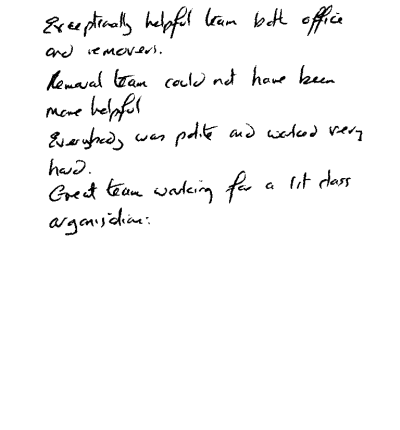 Exceptionally helpful team both office
and removers.
Removal team could not have been
more helpful
Everybody was polite and worked very
hard.
Great team working for a 1st class
organisation.